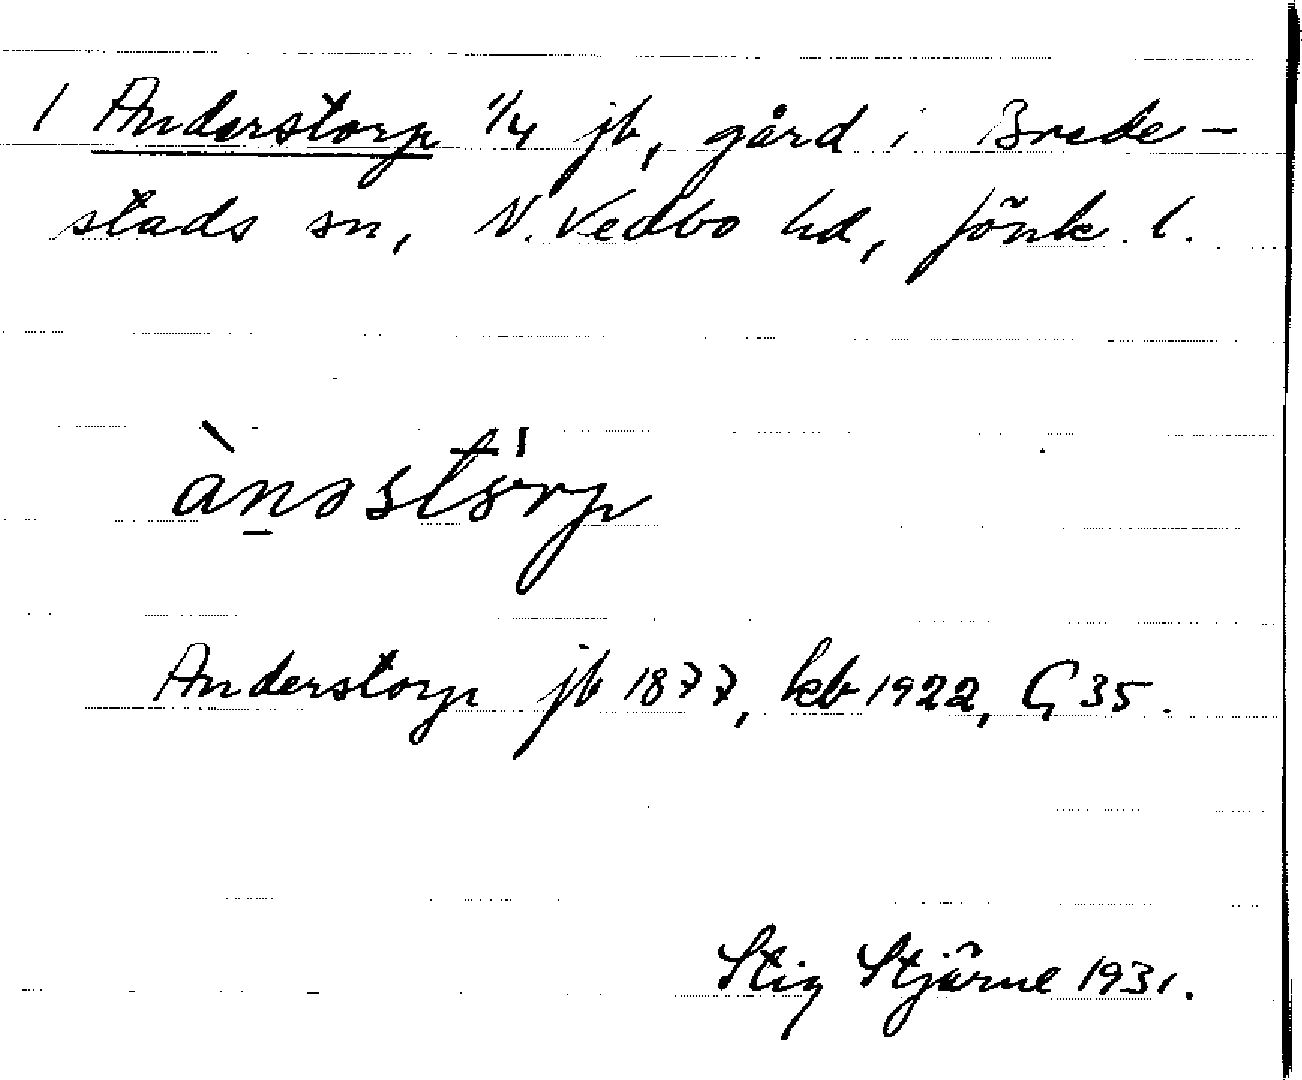 1 Anderstorp 1/4 jb, gård i Brede-
stads sn, N. Vedbo hd, Jönk. l.
ànəstórp
Anderstorp jb 1877, kb 1922, G 35.
Stig Stjärne 1931.